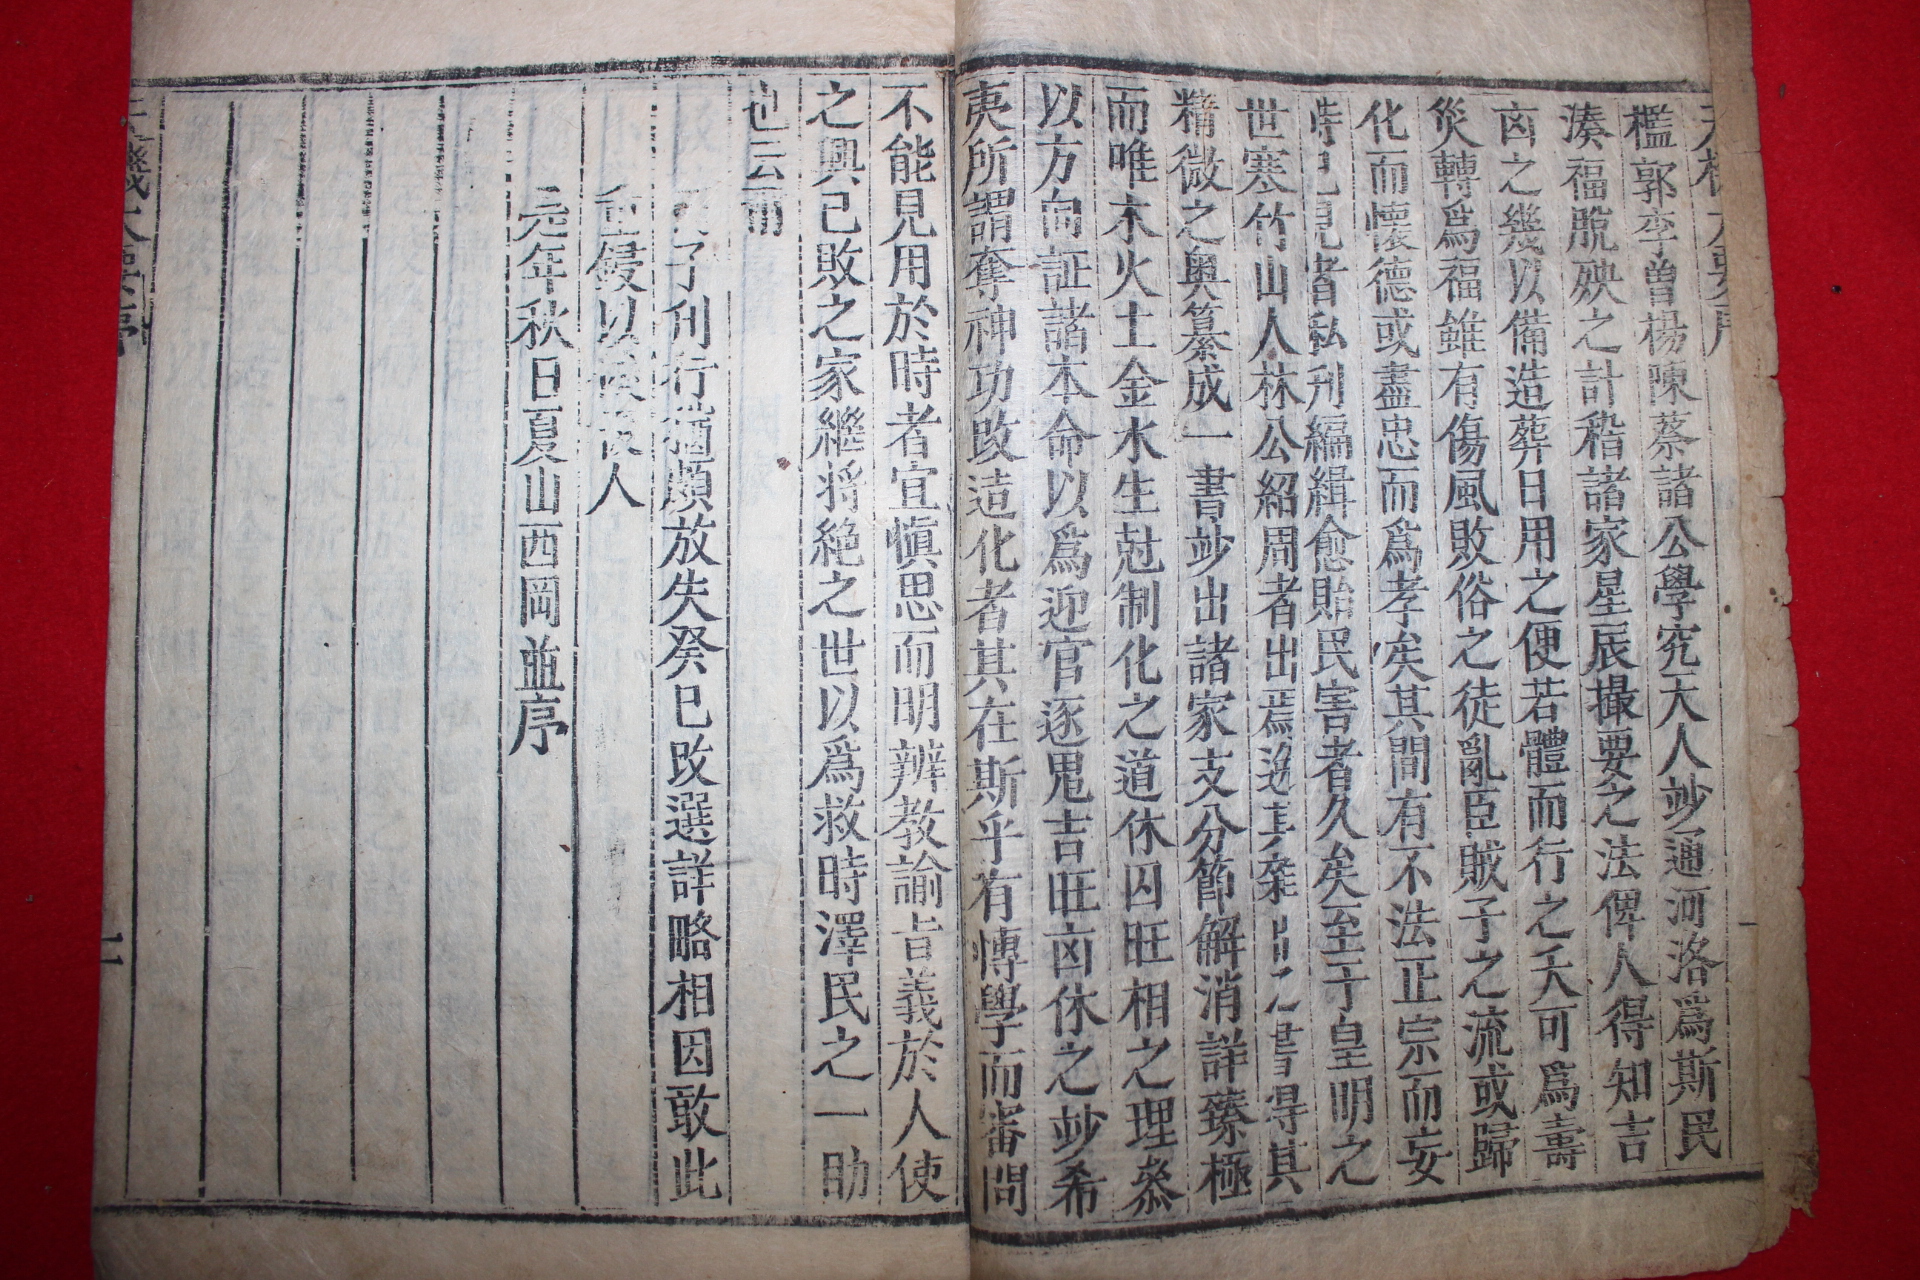 檻郭李曽楊陳蔡諸公學究天人妙通河洛爲斯民
湊福脫殃之計稽諸家星辰撮要之法俾人得知吉
凶之幾以備造葬日用之便若體而行之夭可爲壽
災轉爲福雖有傷風敗俗之徒亂臣賊子之流或歸
化而懷德或盡忠而爲孝矣其間有不法正宗而妄
見者私刊編緝愈貽民害者久矣至于皇明之
世塞竹山人林公紹周者出焉 書得其
精微之奧纂成一書妙出諸家支分節解消詳臻極
而唯木火土金水生尅制化之道休囚旺相之理叅
以方向証諸本命以爲迎官逐鬼吉旺凶休之妙希
夷所謂奪神功改造化者其在斯乎有慱學而審問
不能見用於時者宜愼思而明辨教諭旨義於人使
之興已敗之家繼將絕之世以爲救時澤民之一助
也云爾
子刋行 頗放失癸巳改選詳略相因敢此
重鋟以 後人
元年秋日夏山西岡並序
二